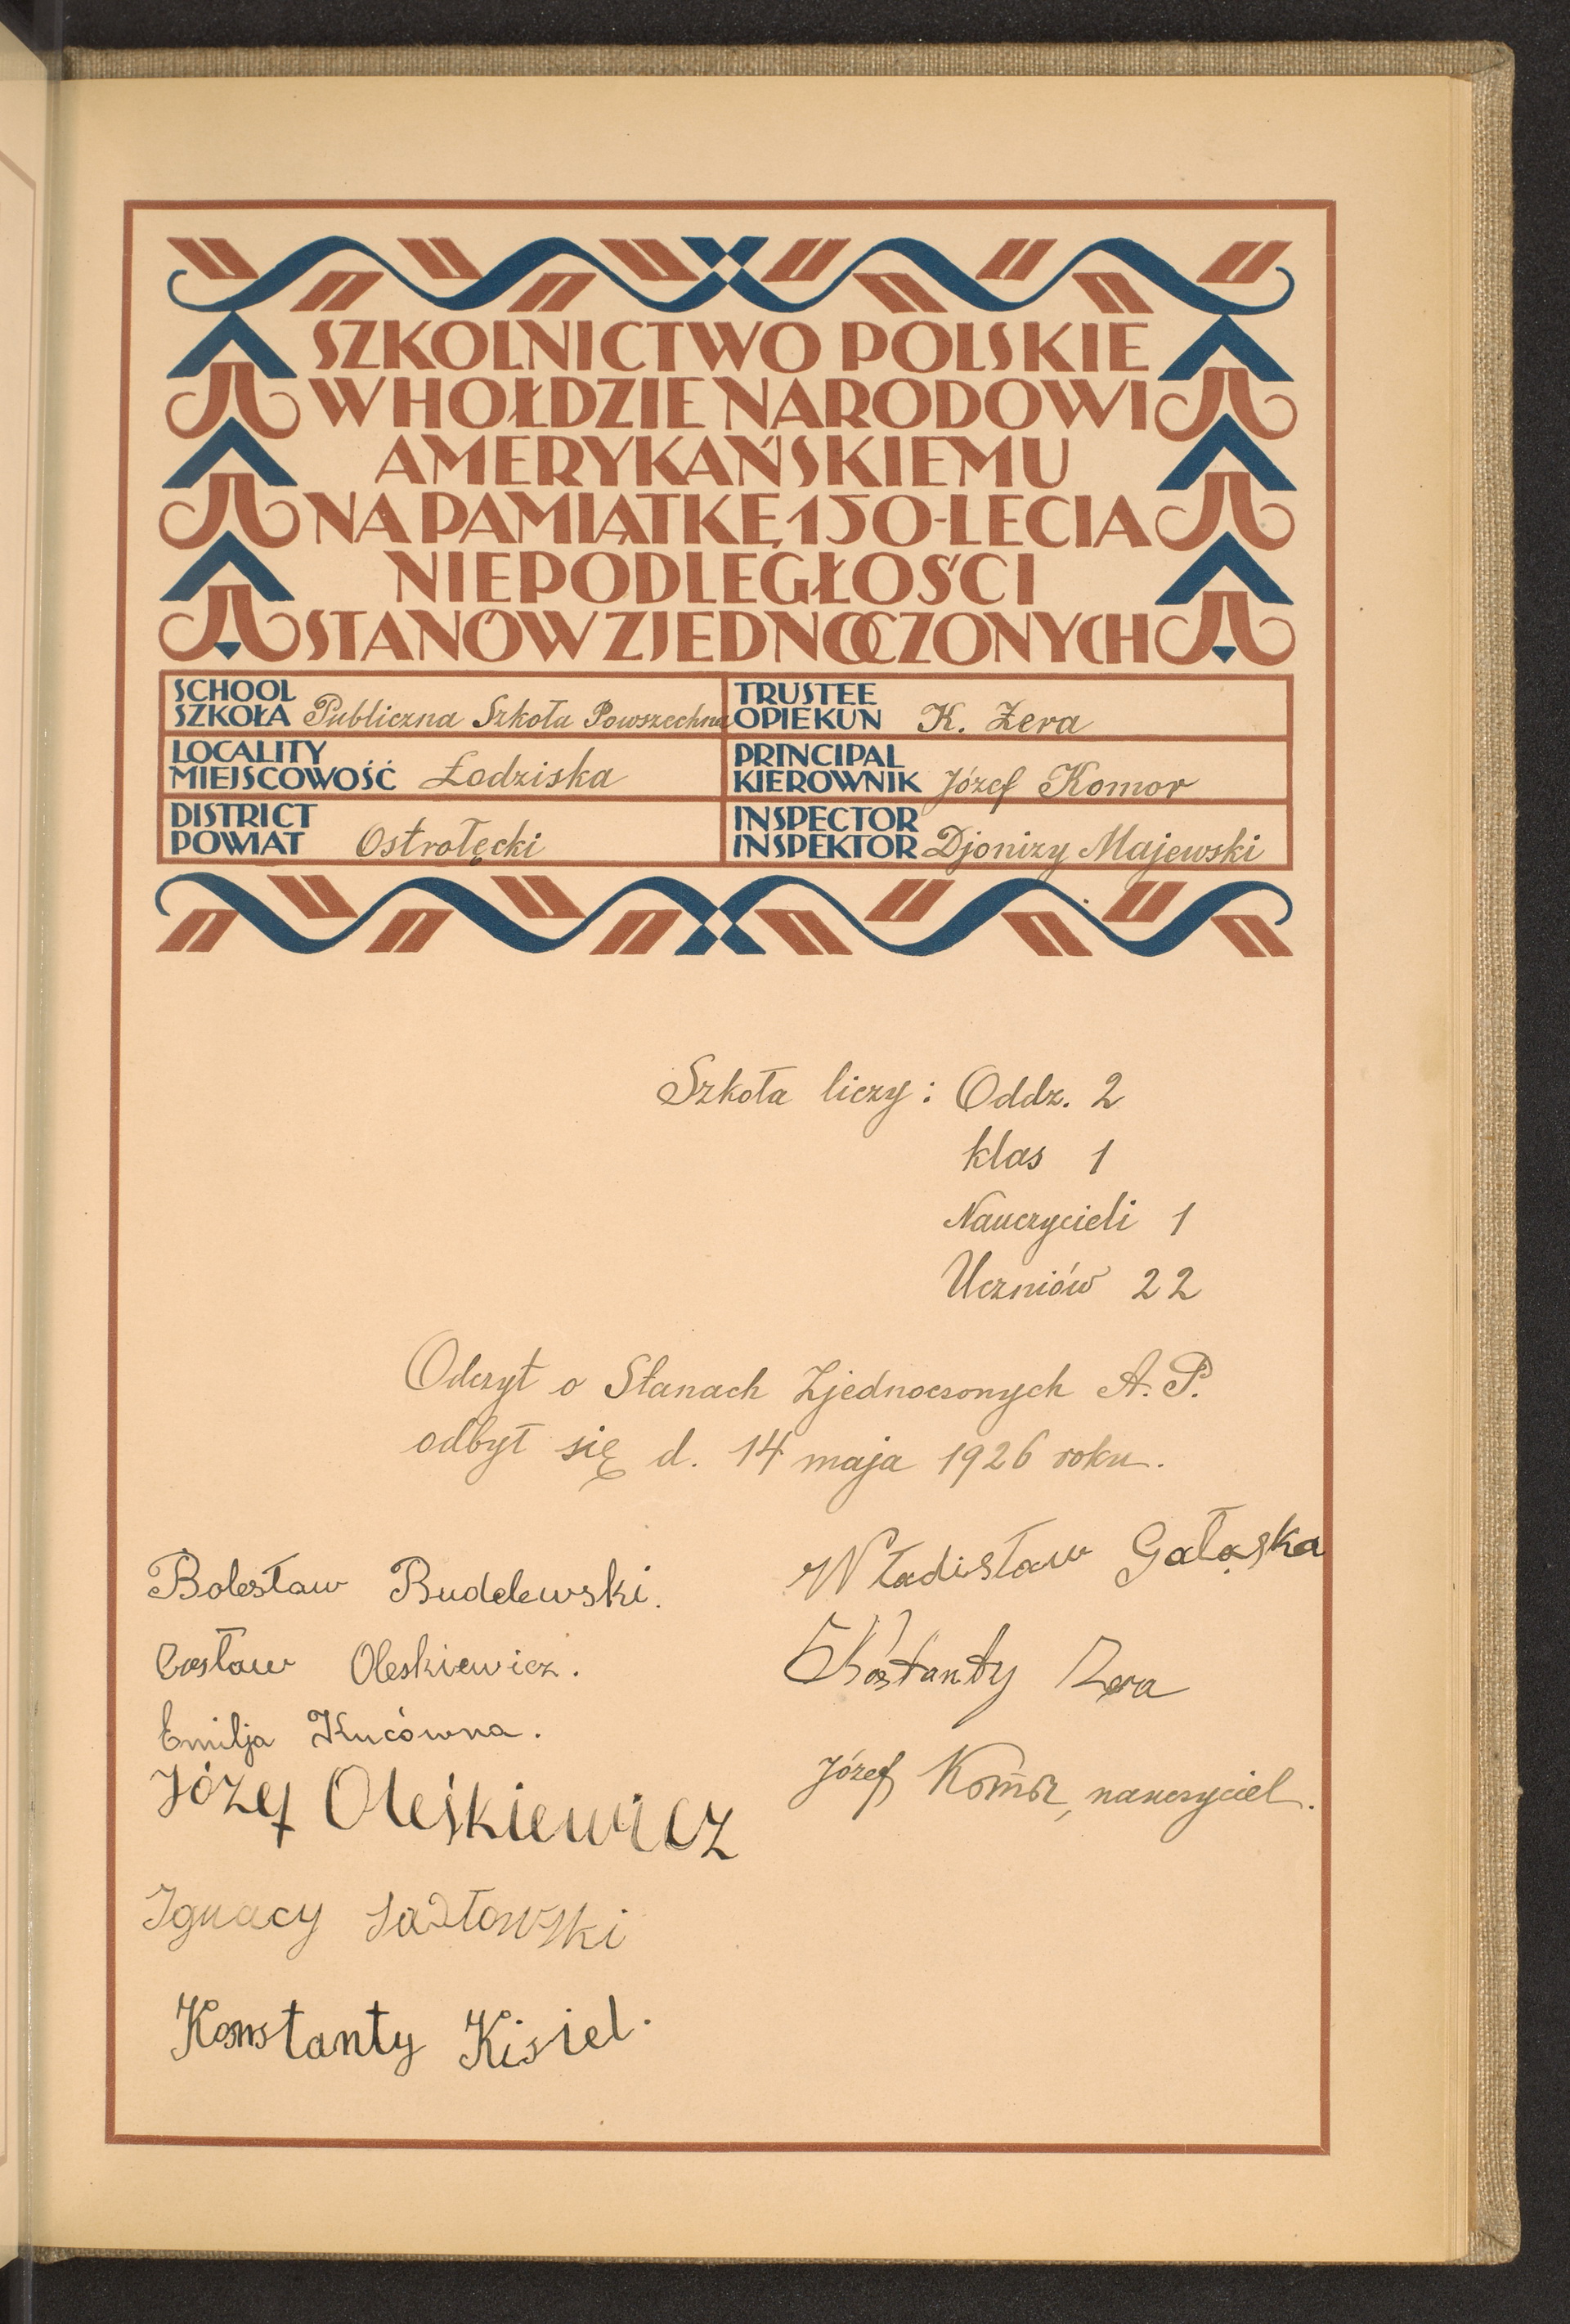 SZKOLNICTWO POLSKIE
W HOŁDZIE NARODOWI
AMERYKAŃSKIEMU
NA PAMIĄTKĘ 150-LECIA
NIEPODLEGŁOŚCI
STANÓW ZJEDNOCZONYCH
SCHOOL
SZKOŁA Publiczna Szkoła Powszechna
TRUSTEE
OPIEKUN K. Żera
LOCALITY
MIEJSCOWOŚĆ Łodziska
PRINCIPAL
KIEROWNIK Józef Komor
DISTRICT
POWIAT Ostrołęcki
INSPECTOR
INSPEKTOR Djonizy Majewski
Szkoła liczy: Oddz. 2
klas 1
Nauczycieli 1
Uczniów 22
Odczyt o Stanach Zjednoczonych A. P.
odbył się d. 14 maja 1926 roku.
Bolesław Budelewski.
Czesław Oleskiewicz.
Emilja Kucówna.
Józef Oleśkiewicz
Ignacy Sadłowski
Konstanty Kisiel.
Władisław Gałąska
Kostanty Zera
Józef Komor, nauczyciel.